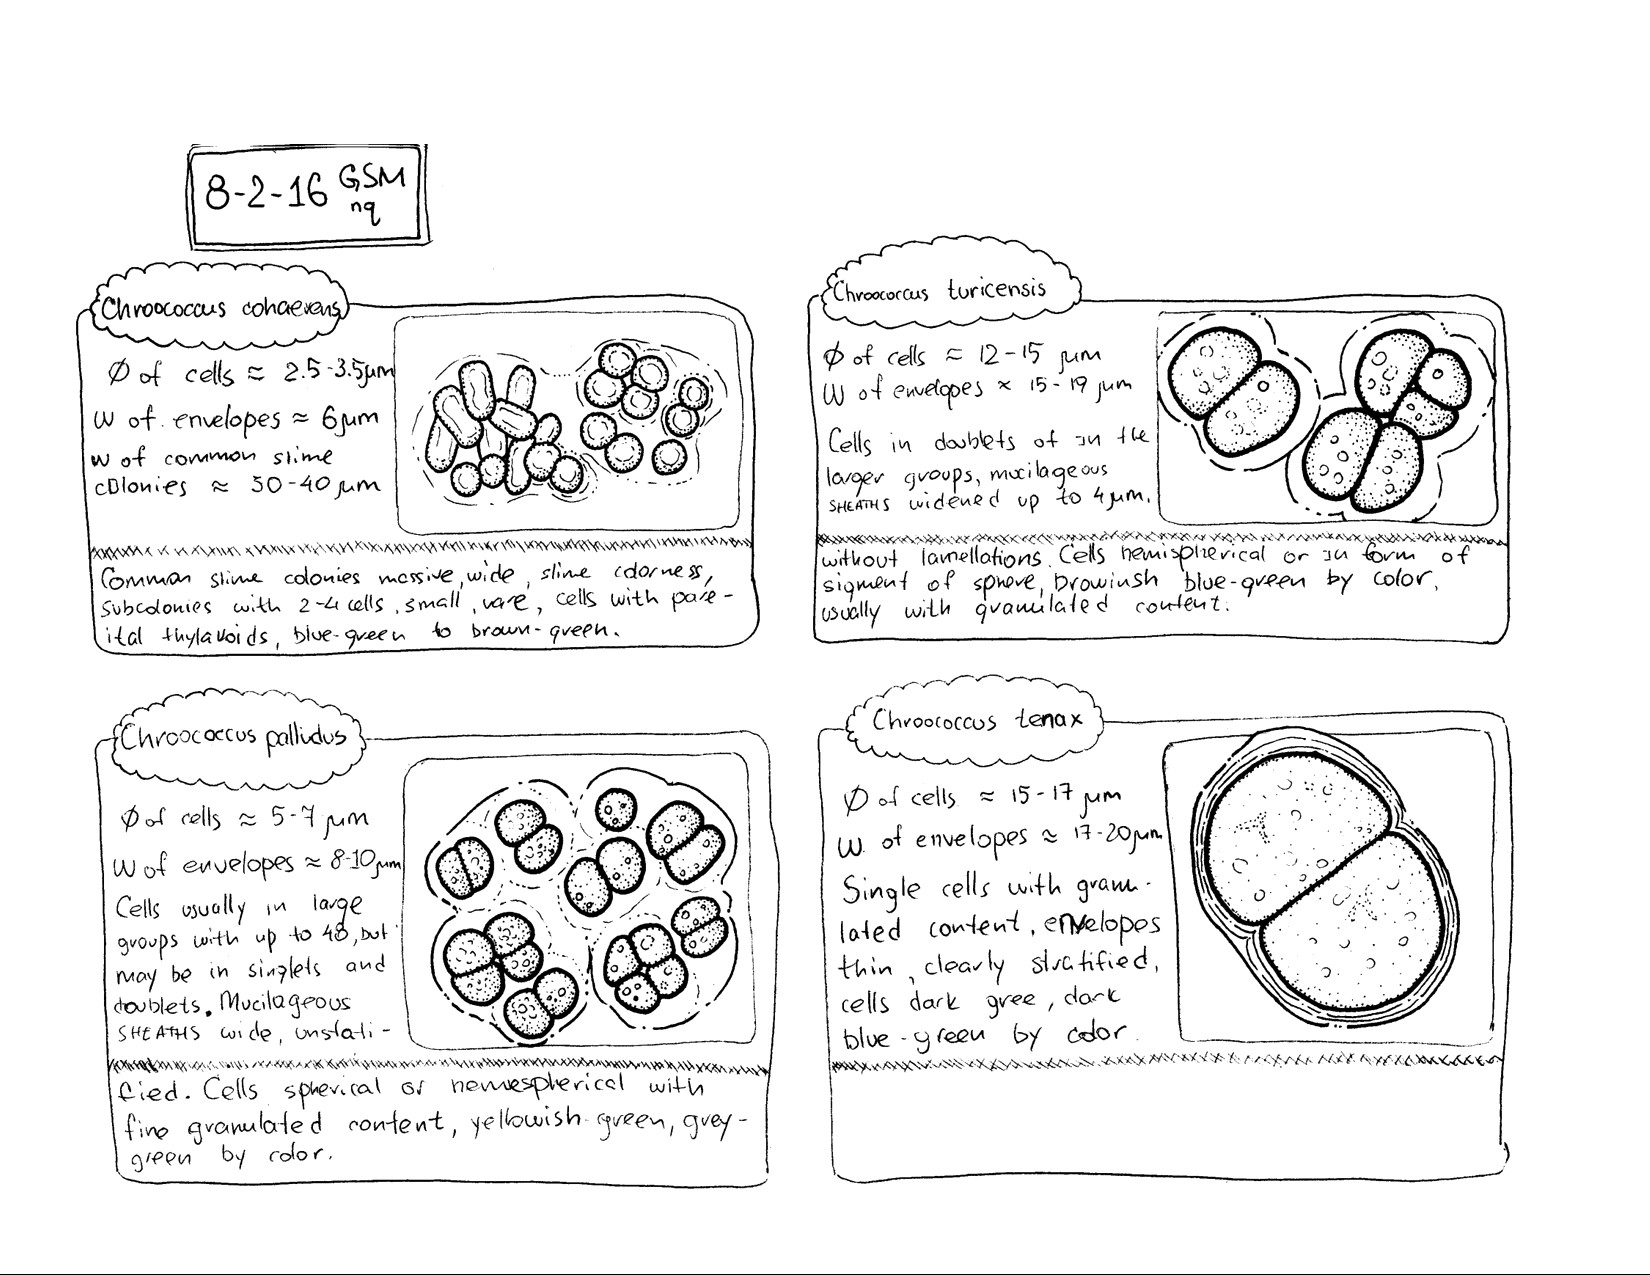 8-2-16 GSM
nq
Chroococcus cohaerens
Ø of cells ≈ 2.5-3.5µm
W of envelopes ≈ 6µm
W of common slime
colonies ≈ 30-40 µm
Common slime colonies massive, wide, slime colorness,
subcolonies with 2-4 cells, small, rare, cells with pare-
ital thylavoids, blue-green to brown-green.
Chroococcus turicensis
Ø of cells ≈ 12-15 µm
W of envelopes ≈ 15-19 µm
Cells in doublets of in the
larger groups, mucilageous
SHEATHS widened up to 4µm.
without lamellations. Cells hemispherical or in form of
sigment of sphere, browinsh blue-green by color,
usually with granulated content.
Chroococcus pallidus
Ø of cells ≈ 5-7 µm
W of envelopes ≈ 8-10µm
Cells usually in large
groups with up to 48, but
may be in singlets and
doublets. Mucilageous
SHEATHS wide, unstati-
fied. Cells spherical or hemespherical with
fine granulated content, yellowish-green, grey-
green by color.
Chroococcus tenax
Ø of cells ≈ 15-17 µm
W. of envelopes ≈ 17-20µm
Single cells with granu-
lated content, envelopes
thin, clearly stratified,
cells dark gree, dark
blue-green by color.